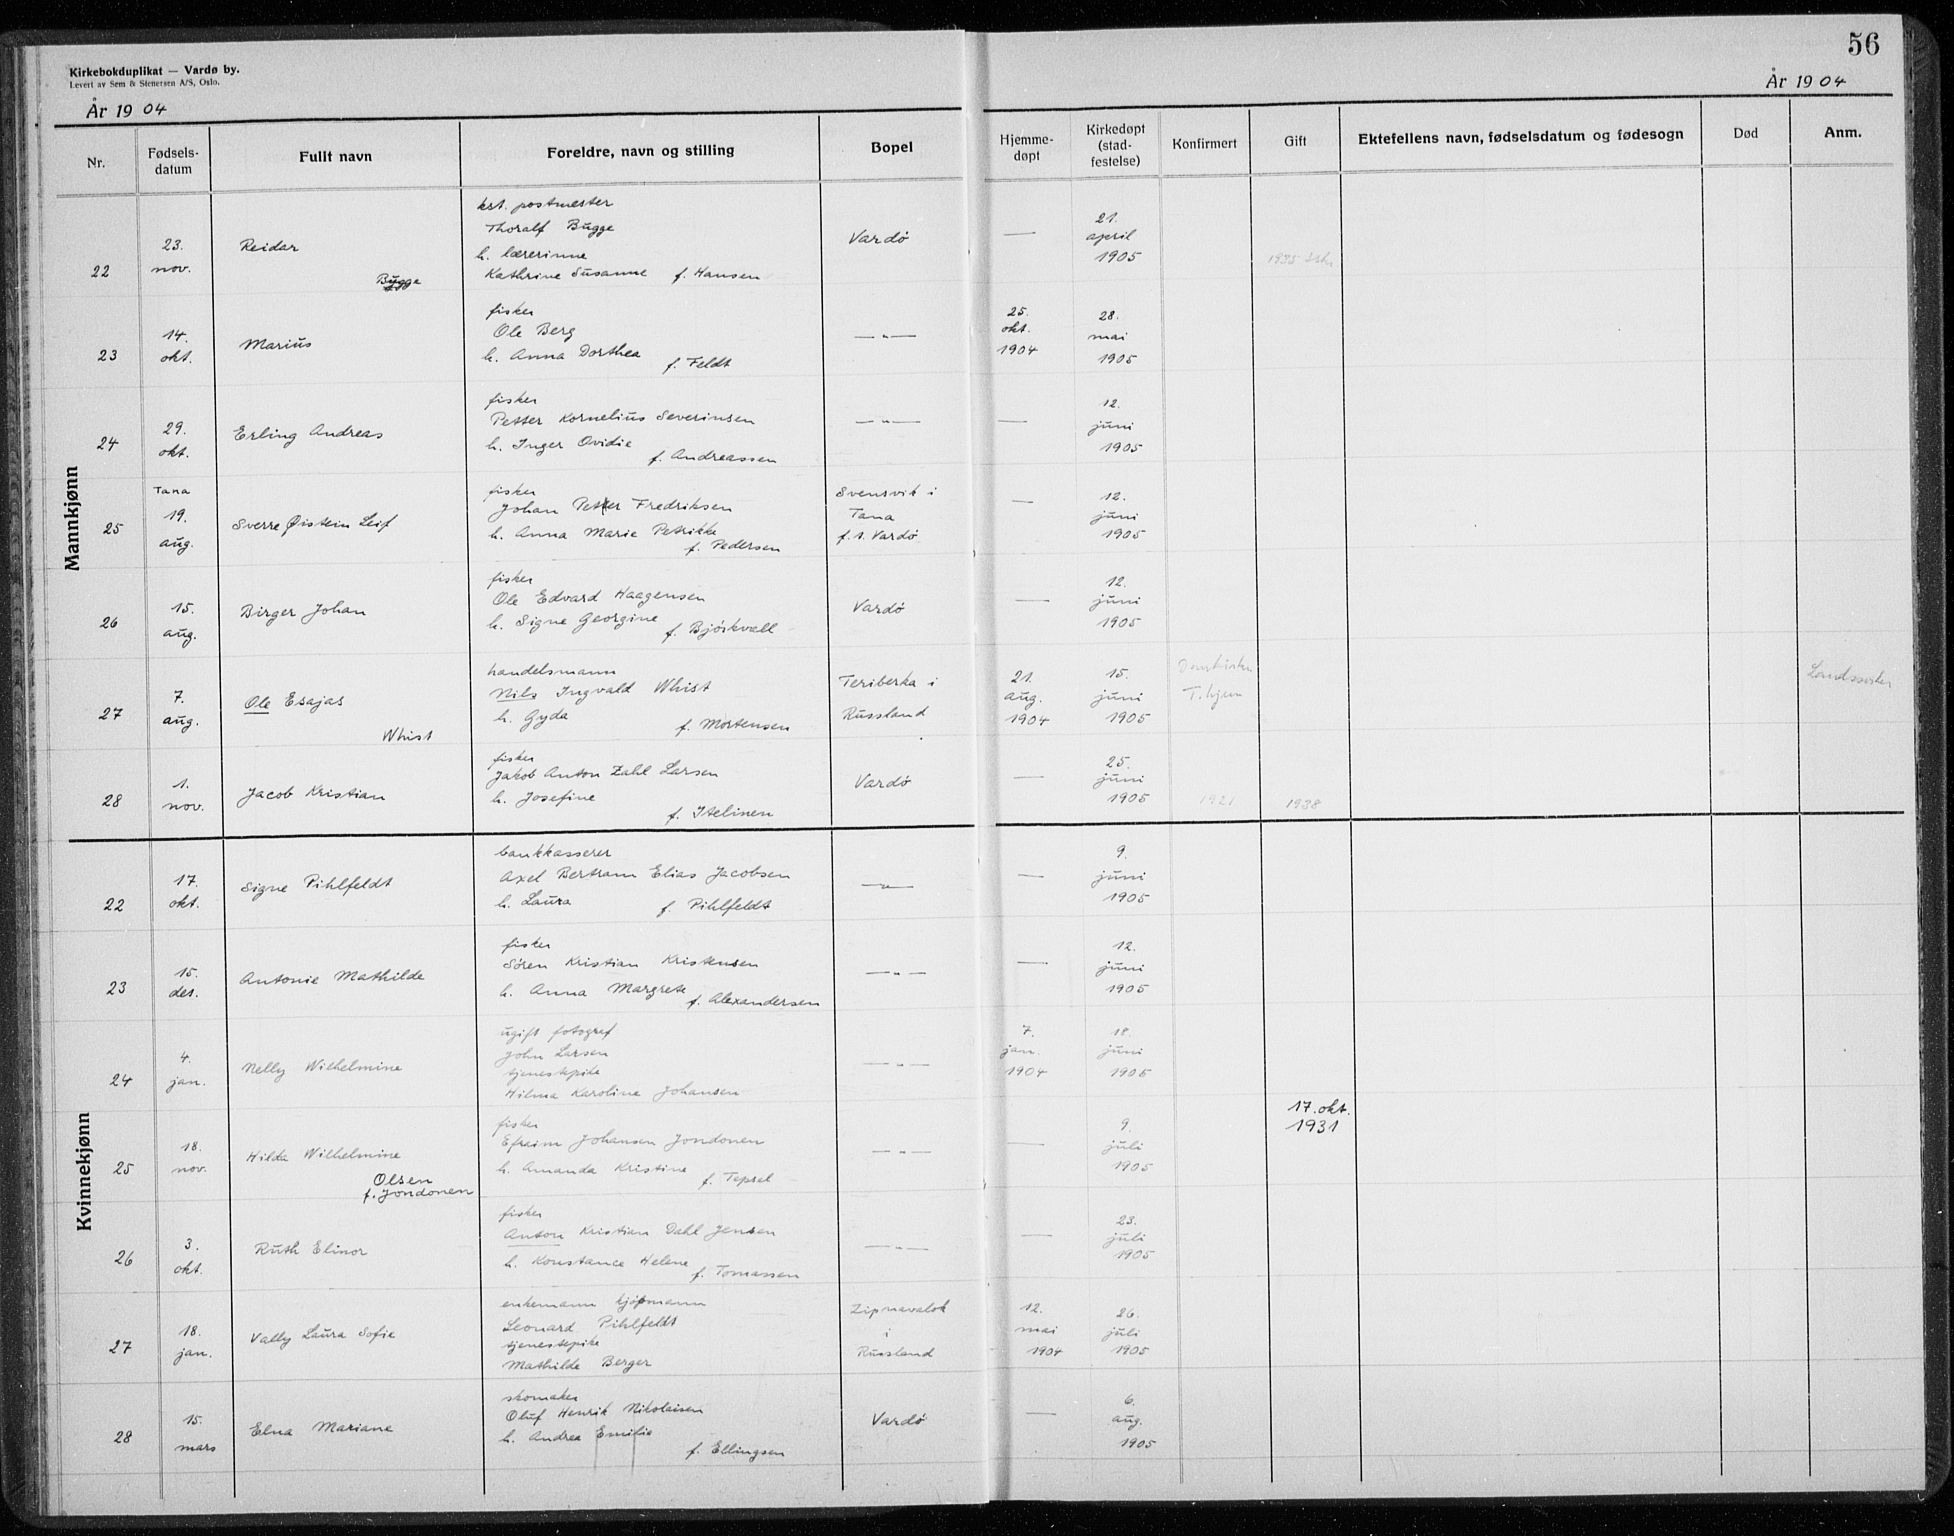 56
Kirkebokduplikat — Vardø by.
Levert av Sem & Stenersen A/S, Oslo.
År 1904
År 1904
Nr. Fødselsdatum Fullt navn Foreldre, navn og stilling Bopel Hjemmedøpt Kirkedøpt (stadfestelse) Konfirmert Gift Ektefellens navn, fødselsdatum og fødesogn Død Anm.
Mannkjønn
22 23. nov. Reidar Bugge
kst. postmester
Thoralf Bugge
h. lærerinne
Kathrine Susanne f. Hansen
Vardø — 21. april 1905 1935
23 14. okt. Marius
fisker
Ole Berg
h. Anna Dorthea
f. Feldt
—"— 25. okt. 1904 28. mai 1905
24 29. okt. Erling Andreas
fisker
Petter Kornelius Severinsen
h. Inger Ovidie
f. Andreassen
—"— — 12. juni 1905
25 Tana 19. aug. Sverre Øistein Leif
fisker
Johan Petter Fredriksen
h. Anna Marie Petrikke
f. Pedersen
Svensvik i Tana f.t. Vardø — 12. juni 1905
26 15. aug. Birger Johan
fisker
Ole Edvard Haagensen
h. Signe Georgine
f. Bjørkvall
Vardø — 12. juni 1905
27 7. aug. Ole Esajas Whist
handelsmann
Nils Ingvald Whist
h. Gyda
f. Mortensen
Teriberka i Russland 21. aug. 1904 15. juni 1905 Domkirken T.hjem
28 1. nov. Jacob Kristian
fisker
Jakob Anton Zahl Larsen
h. Josefine
f. Itelinen
Vardø — 25. juni 1905 1921 1938
Kvinnekjønn
22 17. okt. Signe Pihlfeldt
bankkasserer
Axel Bertram Elias Jacobsen
h. Laura f. Pihlfeldt
—"— — 9. juni 1905
23 15. des. Antonie Mathilde
fisker
Søren Kristian Kristensen
h. Anna Margrete f. Alexandersen
—"— — 12. juni 1905
24 4. jan. Nelly Wilhelmine
ugift fotograf
John Larsen
tjenestepike
Hilma Karoline Johansen
—"— 7. jan. 1904 18. juni 1905
25 18. nov. Hilda Wilhelmine Olsen f. Jondonen
fisker
Efraim Johansen Jondonen
h. Amanda Kristine
f. Tepsel
—"— — 9. juli 1905 17. okt. 1931
26 3. okt. Ruth Elinor
fisker
Anton Kristian Dahl Jensen
h. Konstance Helene
f. Tomassen
—"— — 23. juli 1905
27 18. jan. Vally Laura Sofie
enkemann kjøpmann
Leonard Pihlfeldt
tjenestepike
Mathilde Berger
Zipnavalok i Russland 12. mai 1904 26. juli 1905
28 15. mars Elna Mariane
skomaker
Oluf Henrik Nikolaisen
h. Andrea Emilie
f. Ellingsen
Vardø — 6. aug. 1905